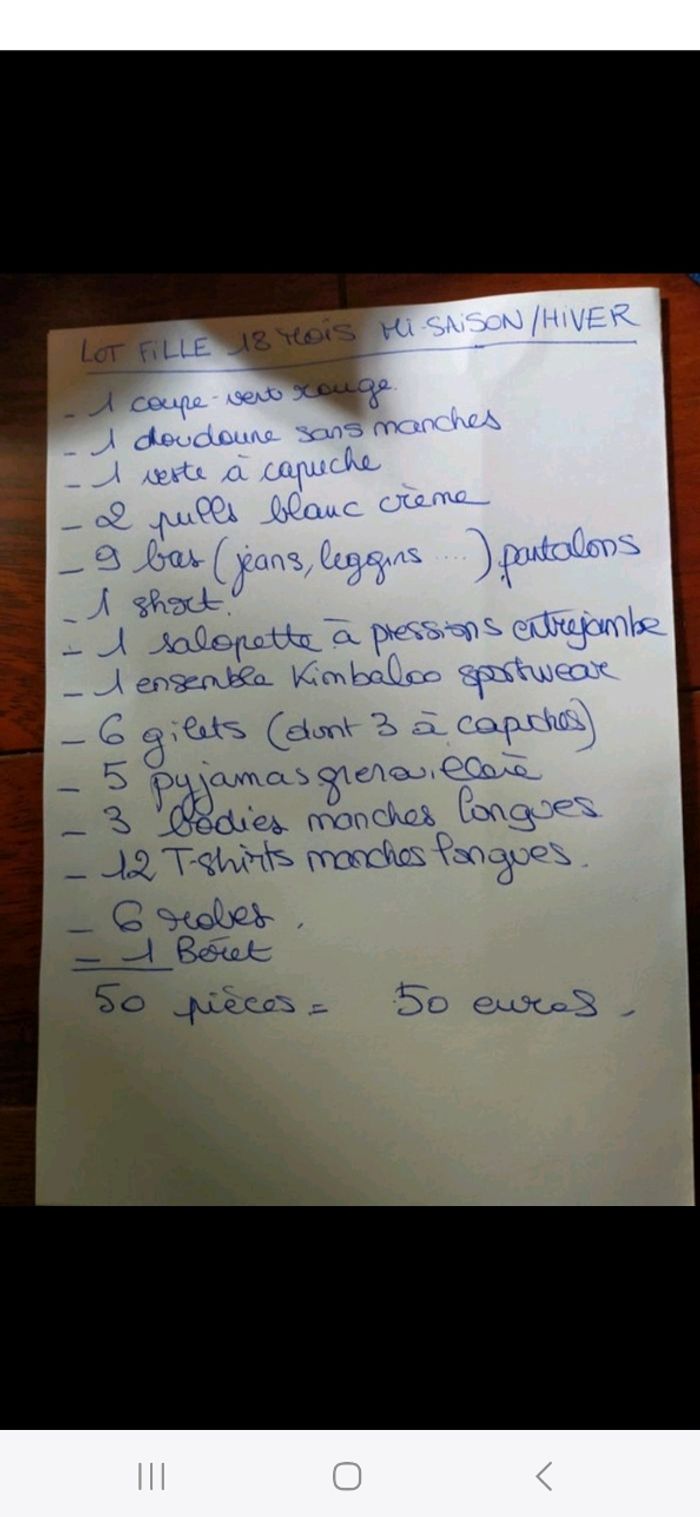 LOT FILLE 18 MOIS MI-SAISON/HIVER
- 1 coupe-vent rouge.
- 1 doudoune sans manches
- 1 veste à capuche
- 2 pulls blanc crème
- 9 bas (jeans, leggins ....) pantalons
- 1 short.
- 1 salopette à pressions entrejambe
- 1 ensemble Kimbaloo sportwear
- 6 gilets (dont 3 à capuches)
- 5 pyjamas grenouillère
- 3 bodies manches longues
- 12 T-shirts manches longues.
- 6 robes.
- 1 Béret
50 pièces = 50 euros.